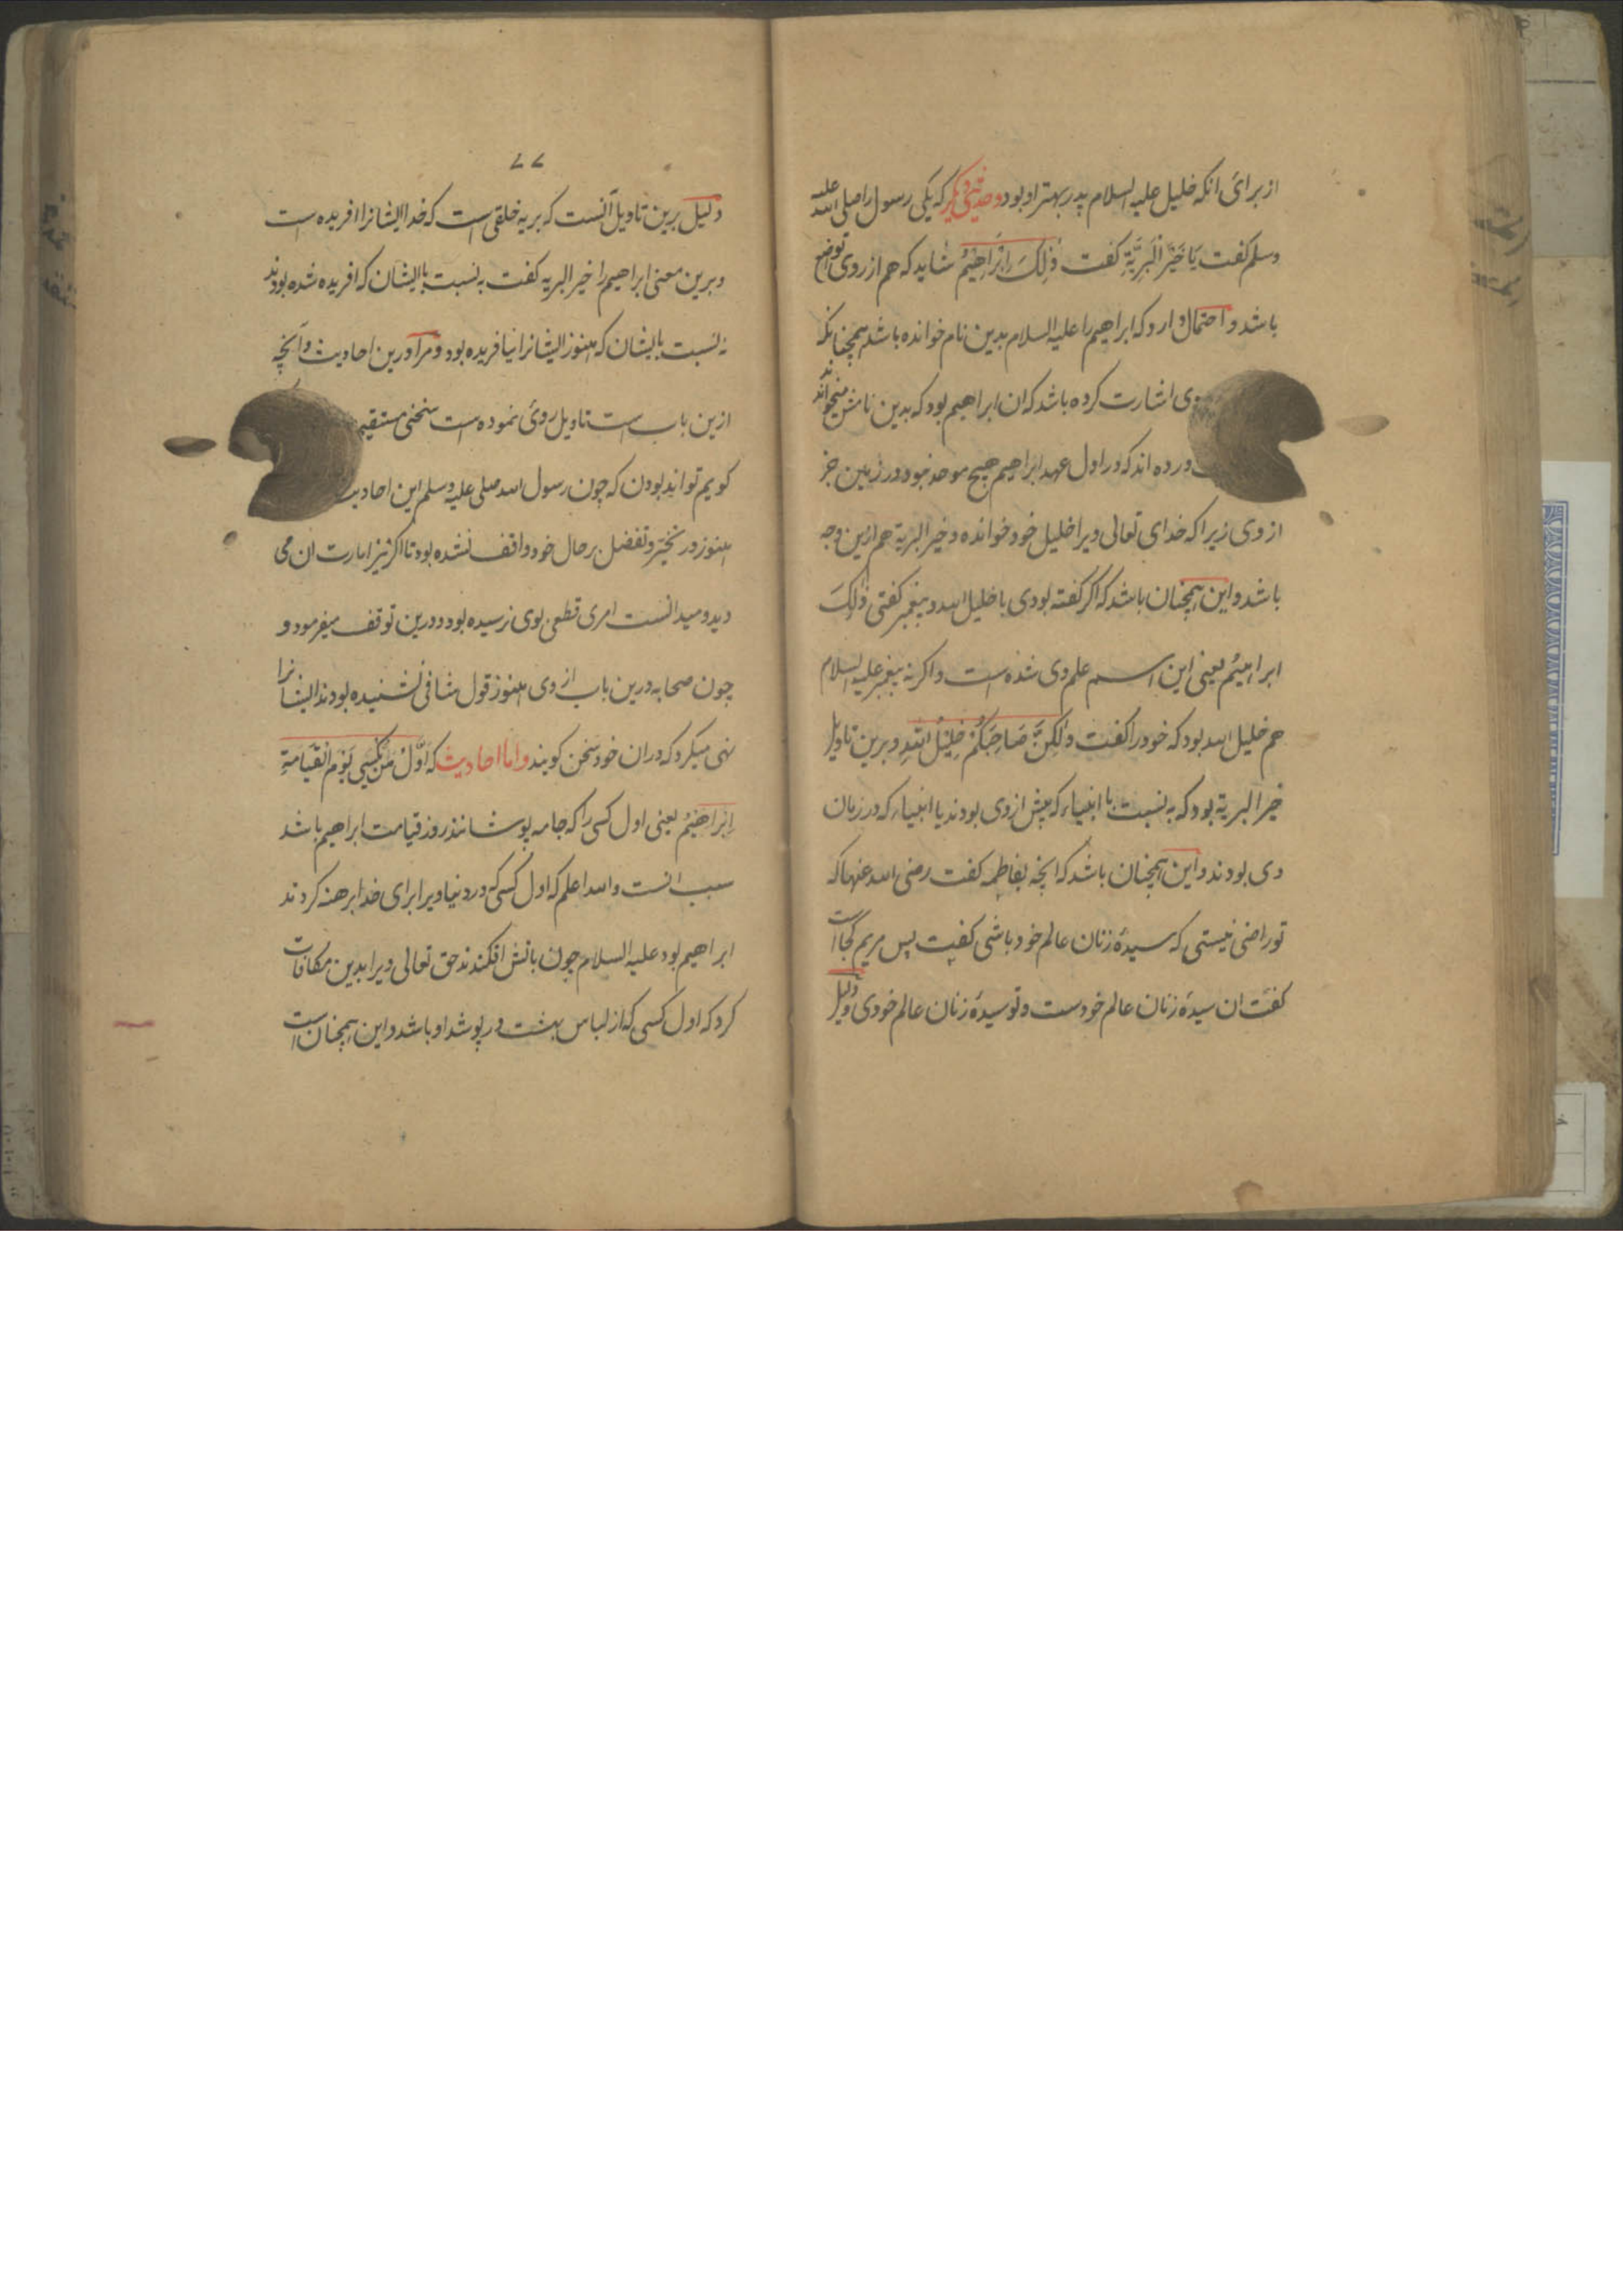 از برائ انکه خلیل علیه السلام پدر بهتر او بود و حدیثی دیگر که یکی رسول را صلی الله علیه
وسلم کفت یَا خَیْرَ الْبَرِیَّةِ کفت ذٰلِکَ اِبْرَاهِیْمُ شاید که هم از روی تواضع
باشد و احتمال دارد که ابراهیم را علیه السلام بدین نام خوانده باشد همچنانکه
وی اشارت کرده باشد که ان ابراهیم بود که بدین نامش میخوانند
ورده اند که در اول عهد ابراهیم هیچ موحد نبود در زمین جز
از وی زیرا که خدای تعالی ویرا خلیل خود خوانده و خیر البریة هم ازین وجه
باشد و این همچنان باشد که اکر کفته بودی یا خلیل الله و پیغمبر کفتی ذٰلِکَ
ابراهِیْمُ یعنی این اسم علم وی شده است و اکر نه پیغمبر علیه السلام
هم خلیل الله بود که خود را کفت وَلٰکِنَّ صَاحِبَکُمْ خَلِیْلُ اللّٰهِ و برین تاویل
خیر البریة بود که به نسبت با انبیاء که پیش از وی بودند یا انبیاء که در زمان
وی بودند و این همچنان باشد که انچه بفاطمه کفت رضی الله عنها که
تو راضی نیستی که سیدۀ زنان عالم خود باشی کفت پس مریم کجا است
کفت ان سیدۀ زنان عالم خودست و تو سیدۀ زنان عالم خودی و دلیل
۷۷
دلیل برین تاویل آنست که بریه خلقی است که خدا ایشانرا افریده است
و برین معنی ابراهیم را خیر البریه کفت به نسبت با ایشان که افریده شده بودند
نه نسبت با ایشان که هنوز ایشانرا نیافریده بود و مرا درین احادیث و آنچه
ازین باب است تاویل روئ نموده است سخنی مستقیم
کویم تواند بودن که چون رسول الله صلی علیه وسلم این احادیث
هنوز در تخییر و تفضل بر حال خود واقف نشده بود تا اکر نیز امارت ان می
دید و میدانست امری قطعی بوی نرسیده بود و درین توقف میفرمود و
چون صحابه درین باب از وی هنوز قول شافی نشنیده بودند ایشانرا
نهی میکرد که دران خود سخن کویند و اما احادیث که اَوَّلُ مَنْ یُکْسٰی یَوْمَ الْقِیَامَةِ
اِبْرَاهِیْمُ یعنی اول کسی را که جامه پوشانند روز قیامت ابراهیم باشد
سبب انست والله اعلم که اول کسی که در دنیا ویرا برای خدا برهنه کردند
ابراهیم بود علیه السلام چون باتش افکندند حق تعالی ویرا بدین مکافات
کرد که اول کسی که از لباس بهشت در پوشد او باشد و این همچنان است